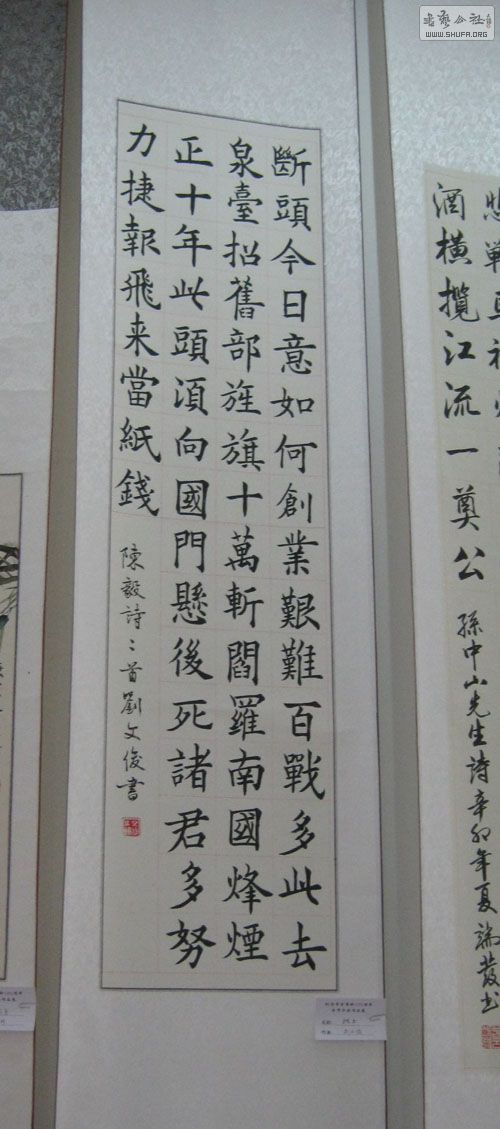 斷頭今日意如何創業艱難百戰多此去
泉臺招舊部旌旗十萬斬閻羅南國烽煙
正十年此頭須向國門懸後死諸君多努
力捷報飛来當紙錢
陳毅詩二首劉文俊書
悲戰馬神州
酒橫攬江流一奠公
孫中山先生詩辛卯年夏端發书
書藝公社
WWW.SHUFA.ORG